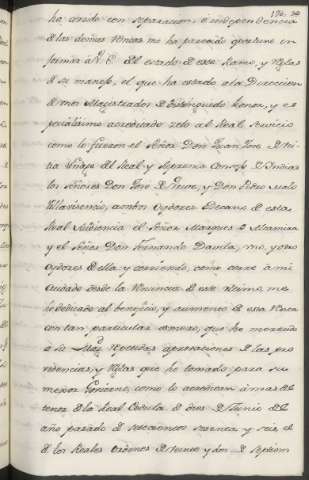 ha corrido con separacion, é independencia
de las demas Rentas me ha parecido oportuno in
formar a V. E. del estado de este Ramo, y Reglas
de su manejo, el que ha estado a la Direccion
de tres Magistrados de distinguido honor, y es
pecialisimo acreditado zelo al Real servicio
como lo fueron el Señor Don
del Real y Supremo Consejo de Indias
los Señores Don Jose de y Don Pedro Malo
Villavicencio, ambos Oydores Decanos de esta
Real Audiencia el Señor Marques de
y el Señor Don Fernando Davila, mo
Oydores de ella y corriendo, como corre a mi
cuidado desde la Renuncia de este ultimo, me
he dedicado al beneficio, y aumento de esta Renta
con tan particular esmero, que ha merecido
a la repetidas aprovaciones de las pro
videncias, y Reglas que he tomado para su
mejor Govierno, como lo acreditan a mas del
tenor de la Real Cedula de dies de Junio del
año pasado de setecientos sesenta y seis, el
de los Reales Ordenes de treinta y dos de Septiem